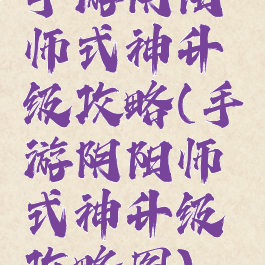 手游阴阳
师式神升
级攻略(手
游阴阳师
式神升级
攻略图)